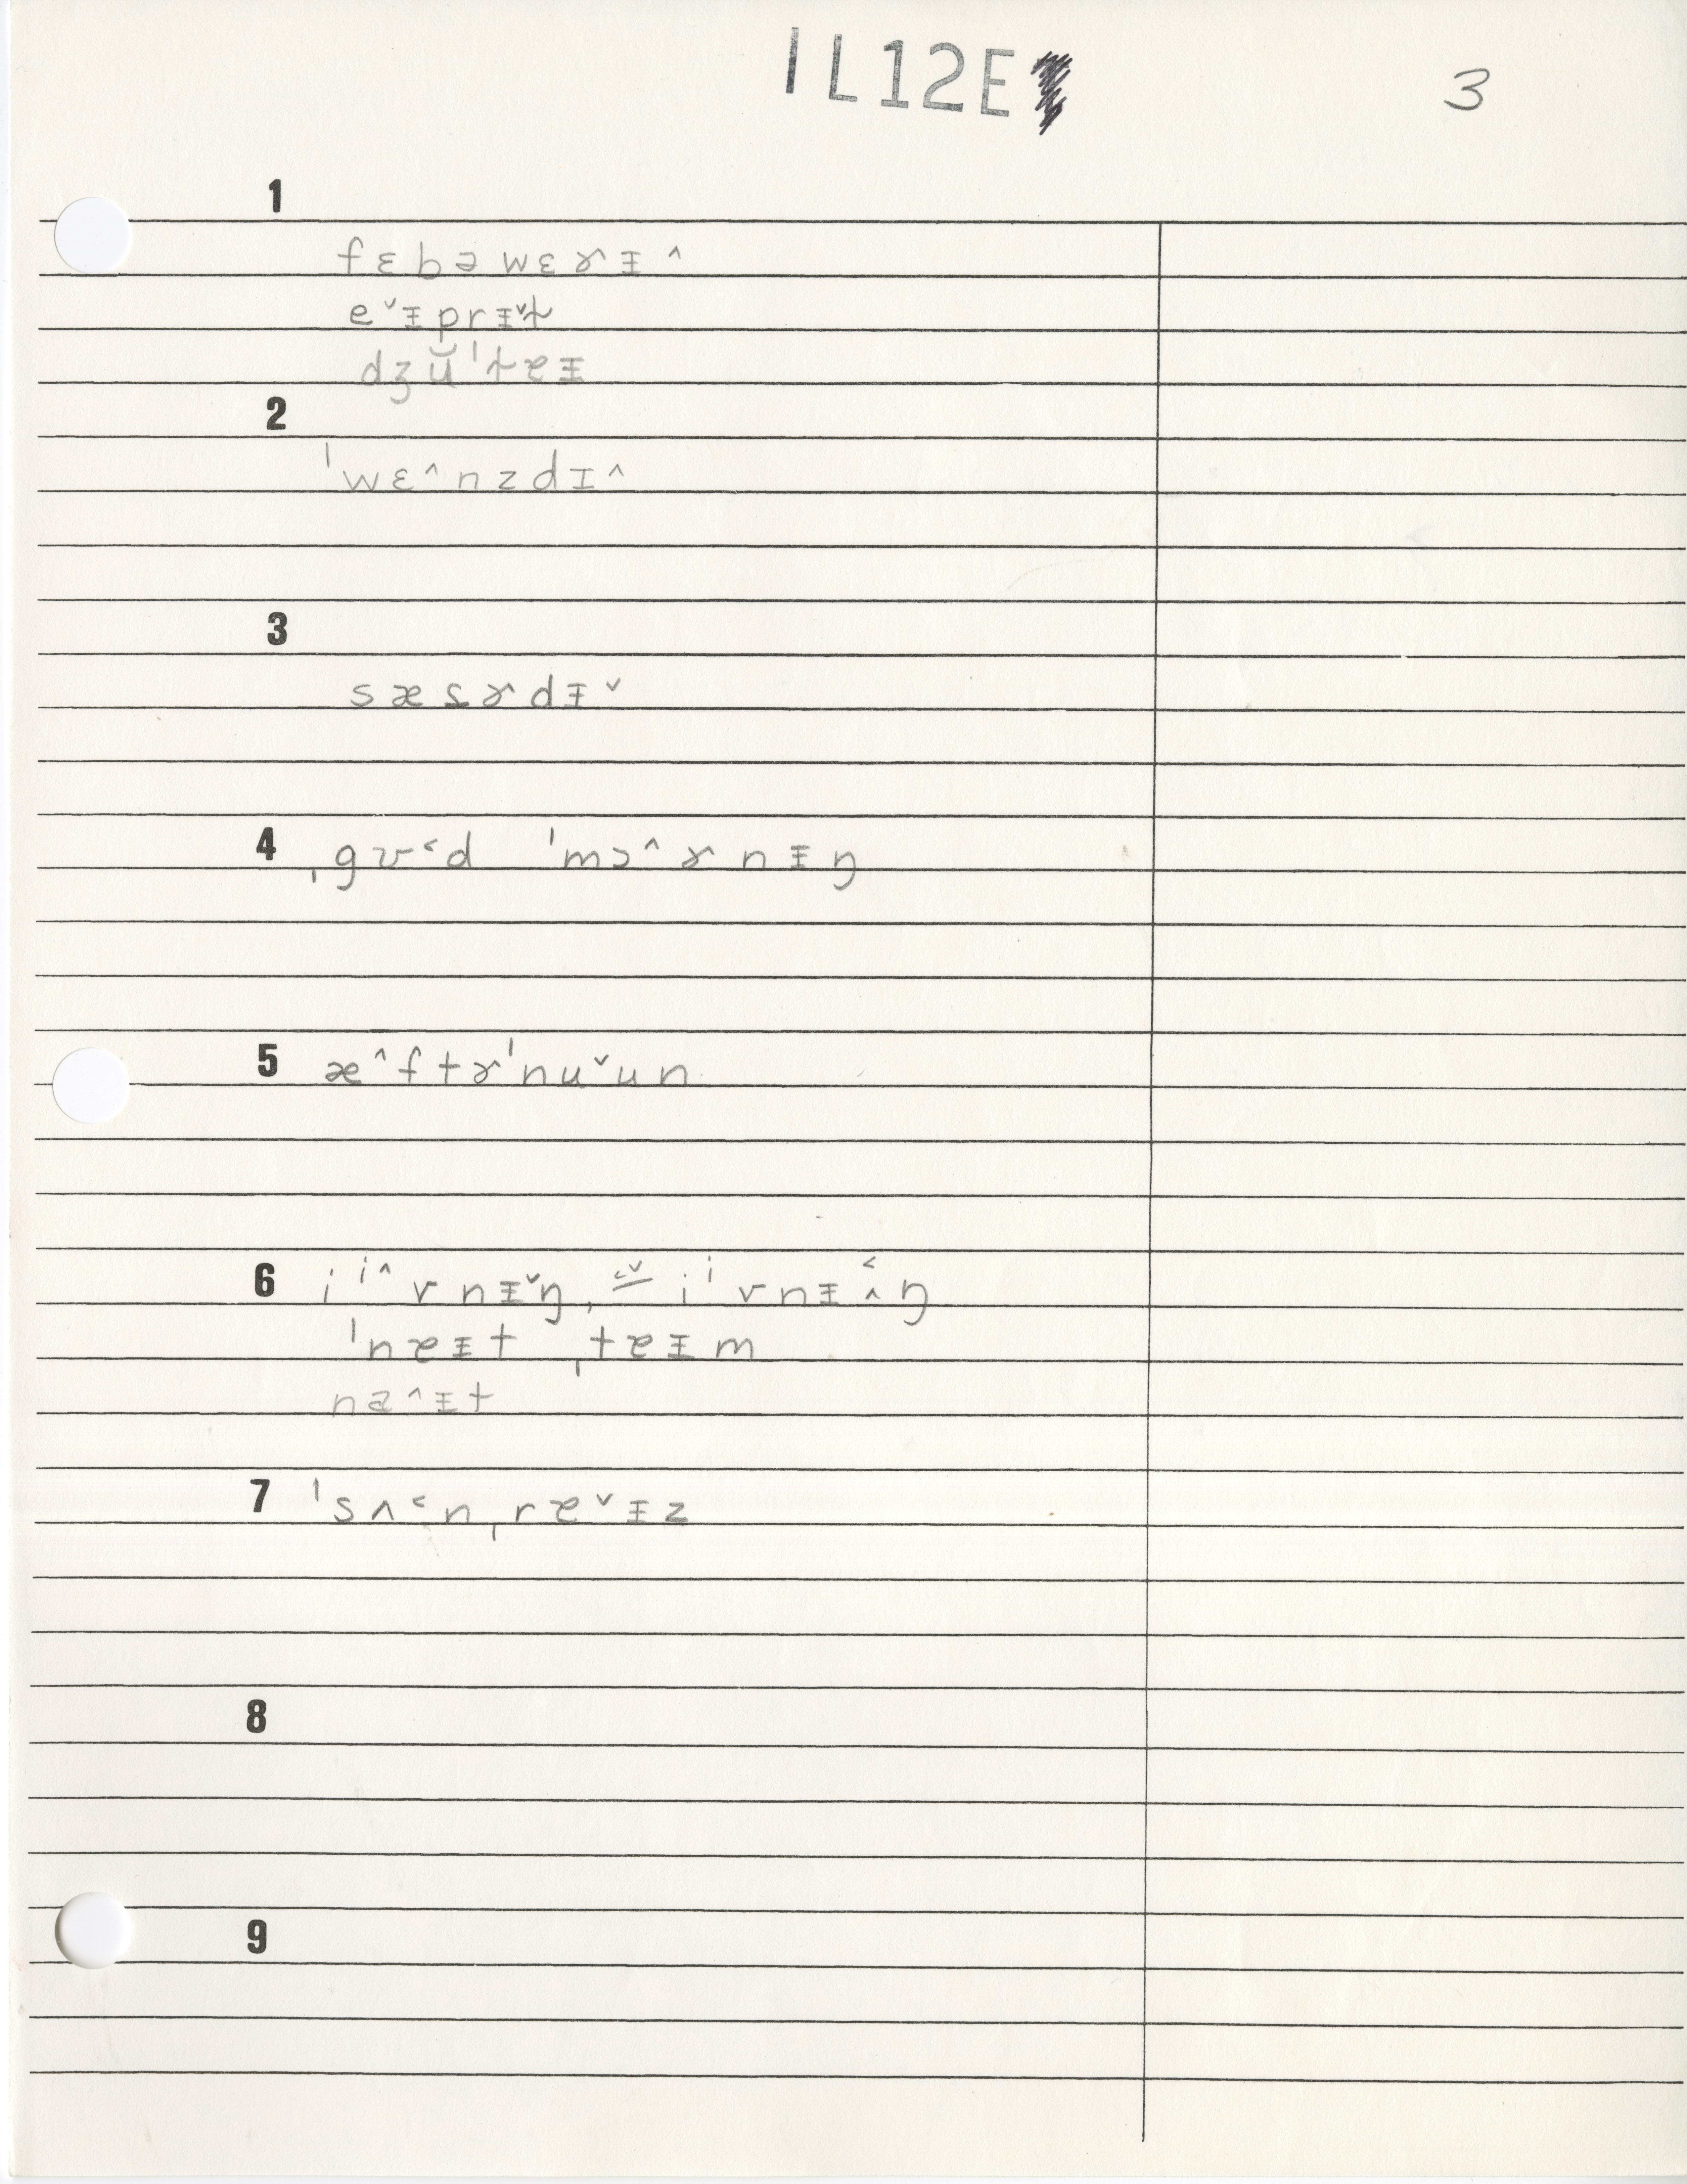 IL12E
3
1
fɛbəwɛɤᵻ^
e˅ᵻprᵻ˅ɫ
dʒŭˈɫɐᵻ
2
ˈwɛ^nzdɪ^
3
sæs̬ɤdᵻ˅
4 ˌgʊ˂d ˈmɔ^ɤnᵻŋ
5 æ^ftɤˈnu˅un
6 iⁱ^vnᵻ˅ŋ, iⁱvnᵻ˂^ŋ
ˈnɐᵻt ˌtɐᵻm
na^ᵻt
7 ˈsʌ˂nˌrɐ˅ᵻz
8
9